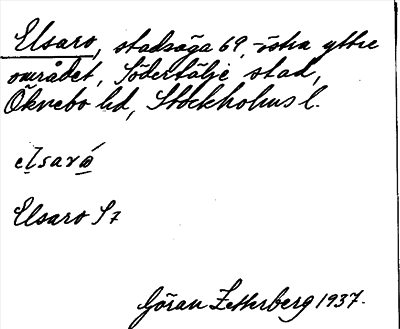 Elsaro, stadsäga 69, östra yttre
området, Södertälje stad,
Öknebo hd, Stockholms l.
elsarω
Elsaro S 7
Göran Zetterberg 1937.